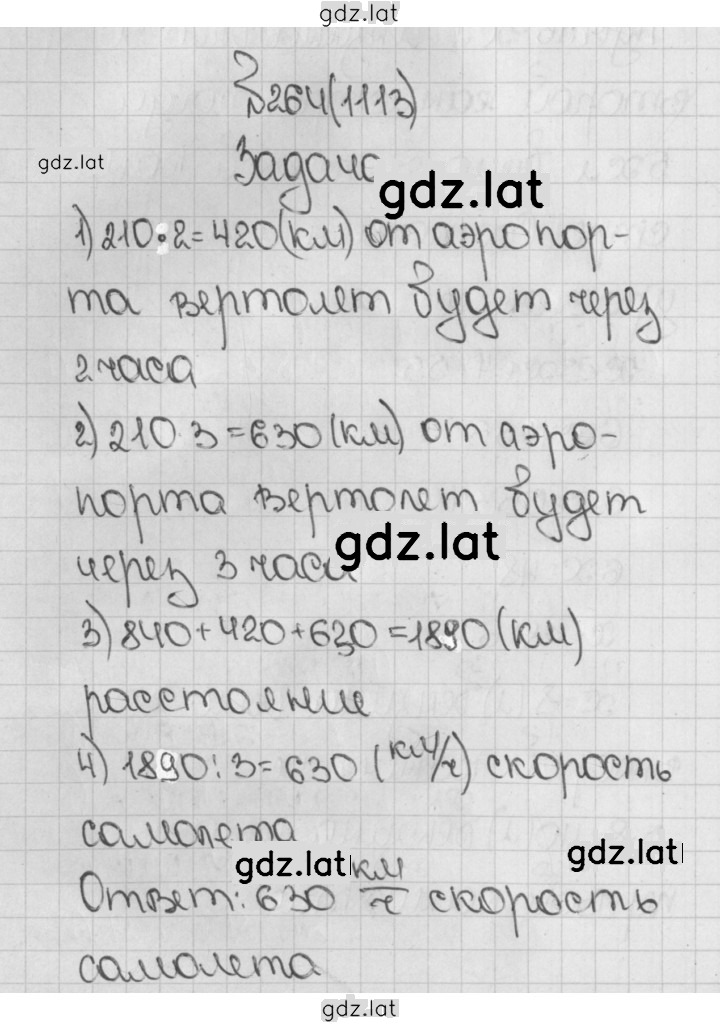 gdz.lat
№264(1113)
gdz.lat
Задача
gdz.lat
1) 210·2=420(км) от аэропор-
та вертолет будет через
2 часа
2) 210·3=630(км) от аэро-
порта вертолет будет
через 3 часа
gdz.lat
3) 840+420+630=1890(км)
расстояние
4) 1890:3=630 (км/ч) скорость
самолета
gdz.lat
gdz.lat
Ответ: 630 км/ч скорость
самолета
gdz.lat